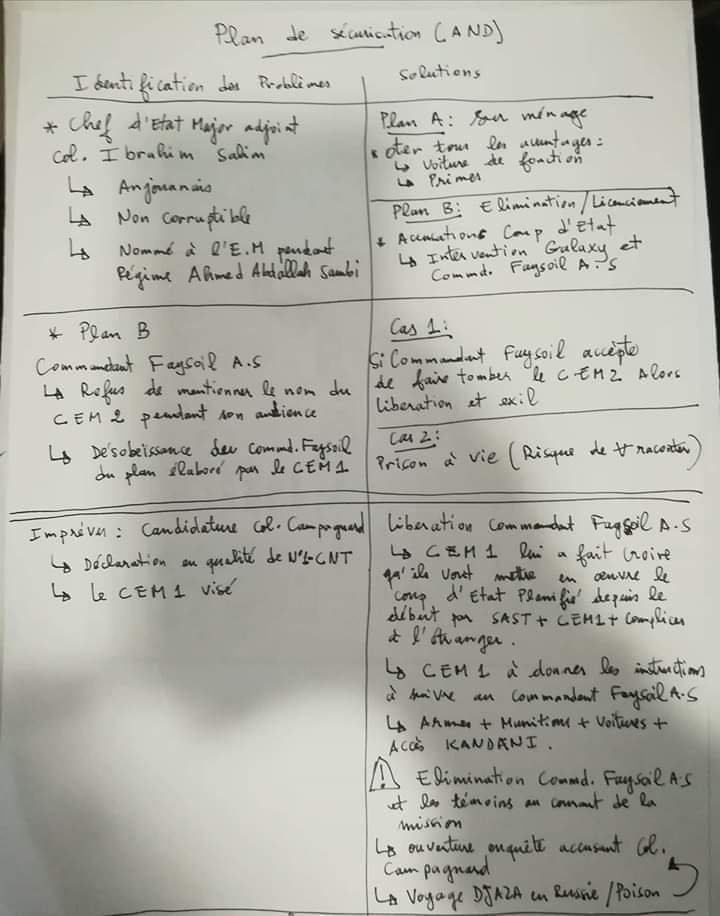 Plan de sécurisation (AND)
Identification des Problèmes
* Chef d'Etat Major adjoint
Col. Ibrahim Salim
↳ Anjouanais
↳ Non corruptible
↳ Nommé à l'E.M pendant
Régime Ahmed Abdallah Sambi
Solutions
Plan A: ménage
* ôter tous les avantages:
↳ Voiture de fonction
↳ Primes
Plan B: Elimination/Licenciement
* Accusations Coup d'Etat
↳ Intervention Galaxy et
Commd. Faysoil A.S
* Plan B
Commandant Faysoil A.S
↳ Refus de mentionner le nom du
CEM 2 pendant son audience
↳ Désobeissance du Commd. Faysoil
du plan élaboré par le CEM 1
Cas 1:
Si Commandant Faysoil accepte
de faire tomber le CEM2 Alors
liberation et exil
Cas 2:
Prison à vie (Risque de ∀ raconter)
Imprévu: Candidature Col. Campagnard
↳ Déclaration en qualité de N°1-CNT
↳ Le CEM 1 visé
Liberation commandant Faysoil A.S
↳ CEM 1 lui a fait croire
qu'ils vont mettre en œuvre le
coup d'Etat Planifié depuis le
début par SAST + CEM1 + Complices
à l'étranger.
↳ CEM 1 à donner les instructions
à suivre au commandant Faysoil A.S
↳ Armes + Munitions + Voitures +
Accès KANDANI.
⚠ Elimination Commd. Faysoil A.S
et les témoins au courant de la
mission
↳ ouverture enquête accusant Col.
Campagnard
↳ Voyage DJAZA en Russie/Poison